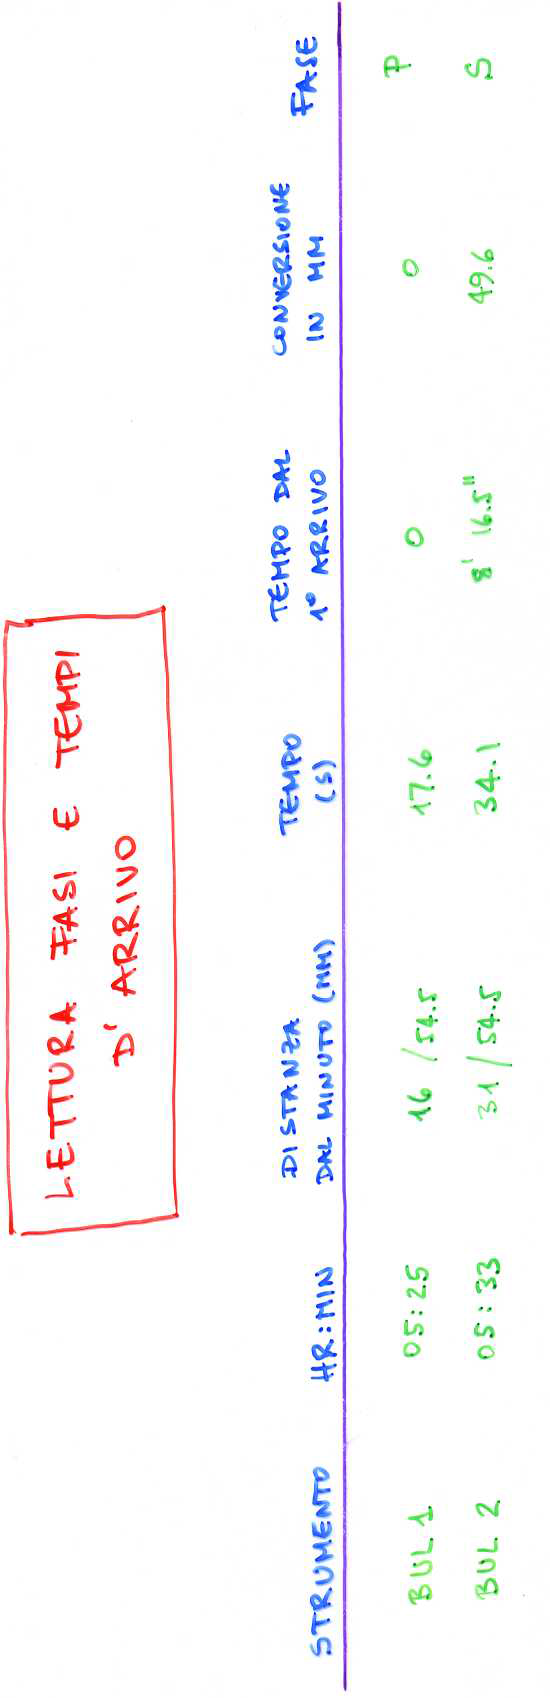 LETTURA FASI E TEMPI
D' ARRIVO
STRUMENTO HR:MIN DISTANZA DAL MINUTO (MM) TEMPO (S) TEMPO DAL 1° ARRIVO CONVERSIONE IN MM FASE
BUL 1 05:25 16/54.5 17.6 0 0 P
BUL 2 05:33 31/54.5 34.1 8' 16.5" 49.6 S